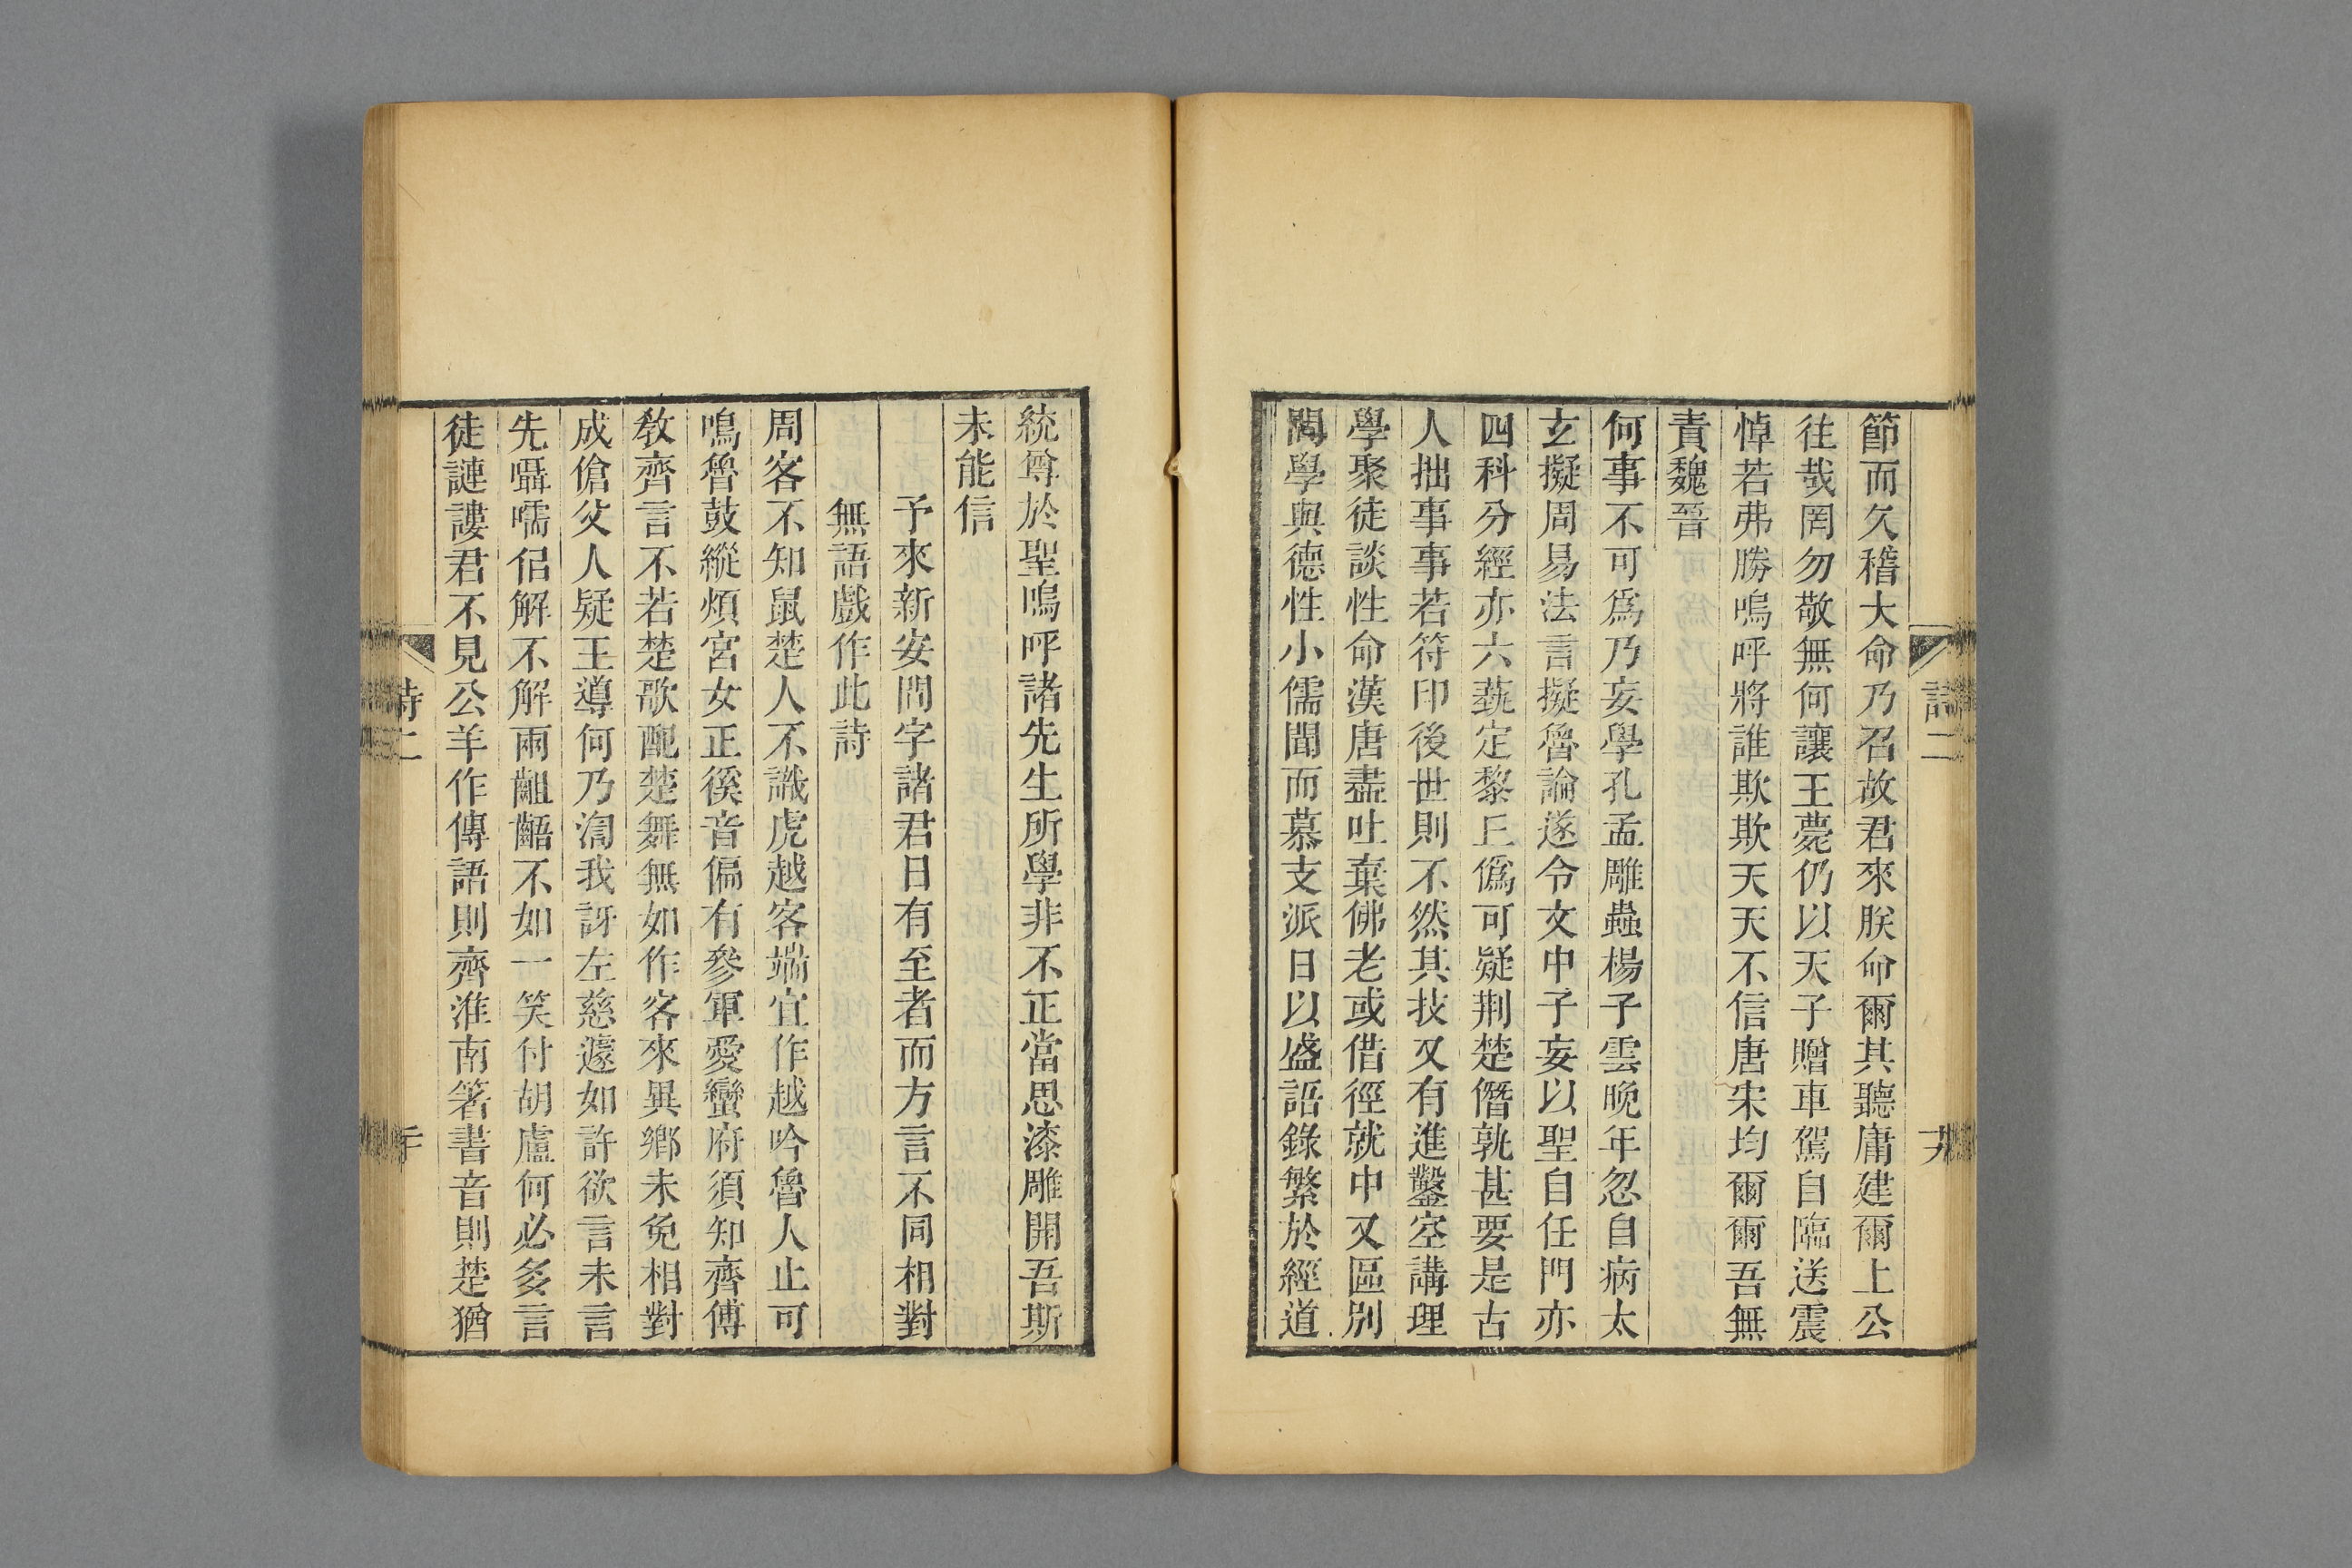 詩二
十九
節而久稽大命乃召故君來朕命爾其聽庸建爾上公
往哉罔勿敬無何讓王薨仍以天子贈車駕自臨送震
悼若弗勝嗚呼將誰欺欺天天不信唐宋均爾爾吾無
責魏晉
何事不可爲乃妄學孔孟雕蟲楊子雲晚年忽自病太
玄擬周易法言擬魯論遂令文中子妄以聖自任門亦
四科分經亦六蓺定黎𠀉僞可疑荆楚僭孰甚要是古
人拙事事若符印後世則不然其技又有進鑿空講理
學聚徒談性命漢唐盡吐棄佛老或借徑就中又區別
閩學與德性小儒聞而慕支派日以盛語錄繁於經道
統尊於聖嗚呼諸先生所學非不正當思漆雕開吾斯
未能信
予來新安問字諸君日有至者而方言不同相對
無語戲作此詩
周客不知鼠楚人不識虎越客端宜作越吟魯人止可
鳴魯鼓縱煩宮女正徯音偏有參軍愛蠻府須知齊傅
敎齊言不若楚歌配楚舞無如作客來異鄉未免相對
成傖父人疑王導何乃渹我訝左慈遽如許欲言未言
先囁嚅佀解不解兩齟齬不如一笑付胡盧何必多言
徒謰謱君不見公羊作傳語則齊淮南箸書音則楚猶
詩二